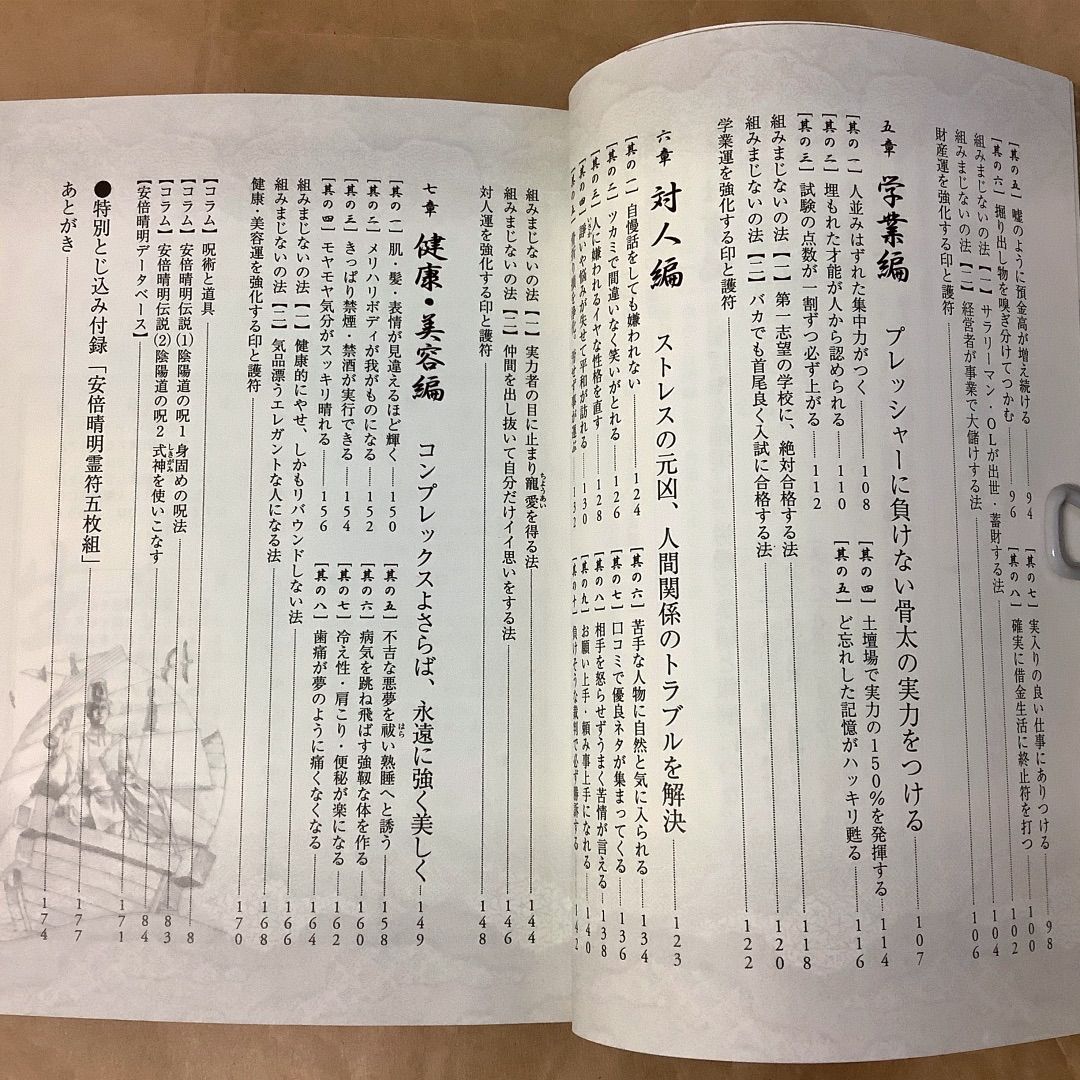 【其の五】嘘のように預金高が増え続ける……94
【其の六】掘り出し物を嗅ぎ分けてつかむ……96
【其の七】実入りの良い仕事にありつける……98
【其の八】確実に借金生活に終止符を打つ……100
組みまじないの法【一】サラリーマン・OLが出世・蓄財する法……102
組みまじないの法【二】経営者が事業で大儲けする法……104
財産運を強化する印と護符……106
五章 学業編 プレッシャーに負けない骨太の実力をつける……107
【其の一】人並みはずれた集中力がつく……108
【其の二】埋もれた才能が人から認められる……110
【其の三】試験の点数が一割ずつ必ず上がる……112
【其の四】土壇場で実力の150%を発揮する……114
【其の五】ど忘れした記憶がハッキリ甦る……116
組みまじないの法【一】第一志望の学校に、絶対合格する法……118
組みまじないの法【二】バカでも首尾良く入試に合格する法……120
学業運を強化する印と護符……122
六章 対人編 ストレスの元凶、人間関係のトラブルを解決……123
【其の一】自慢話をしても嫌われない……124
【其の二】ツカミで間違いなく笑いがとれる……126
【其の三】人に嫌われるイヤな性格を直す……128
【其の四】諍いや悩みが失せて平和が訪れる……130
【其の五】……132
【其の六】苦手な人物に自然と気に入られる……134
【其の七】口コミで優良ネタが集まってくる……136
【其の八】相手を怒らせずうまく苦情が言える……138
【其の九】お願い上手・頼み事上手になれる……140
【其の十】負けそうな裁判で必ず勝訴する……142
組みまじないの法【一】実力者の目に止まり寵愛を得る法……144
組みまじないの法【二】仲間を出し抜いて自分だけイイ思いをする法……146
対人運を強化する印と護符……148
七章 健康・美容編 コンプレックスよさらば、永遠に強く美しく……149
【其の一】肌・髪・表情が見違えるほど輝く……150
【其の二】メリハリボディが我がものになる……152
【其の三】きっぱり禁煙・禁酒が実行できる……154
【其の四】モヤモヤ気分がスッキリ晴れる……156
【其の五】不吉な悪夢を祓い熟睡へと誘う……158
【其の六】病気を跳ね飛ばす強靱な体を作る……160
【其の七】冷え性・肩こり・便秘が楽になる……162
【其の八】歯痛が夢のように痛くなくなる……164
組みまじないの法【一】健康的にやせ、しかもリバウンドしない法……166
組みまじないの法【二】気品漂うエレガントな人になる法……168
健康・美容運を強化する印と護符……170
【コラム】呪術と道具……8
【コラム】安倍晴明伝説(1)陰陽道の呪1 身固めの呪法……83
【コラム】安倍晴明伝説(2)陰陽道の呪2 式神を使いこなす……84
【安倍晴明データベース】……171
●特別とじ込み付録「安倍晴明霊符五枚組」……177
あとがき……174